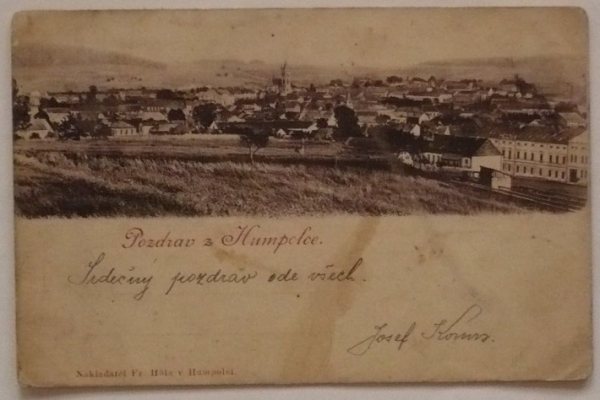 Pozdrav z Humpolce.
Srdečný pozdrav ode všech.
Josef
Nakladatel Fr. Hůla v Humpolci.